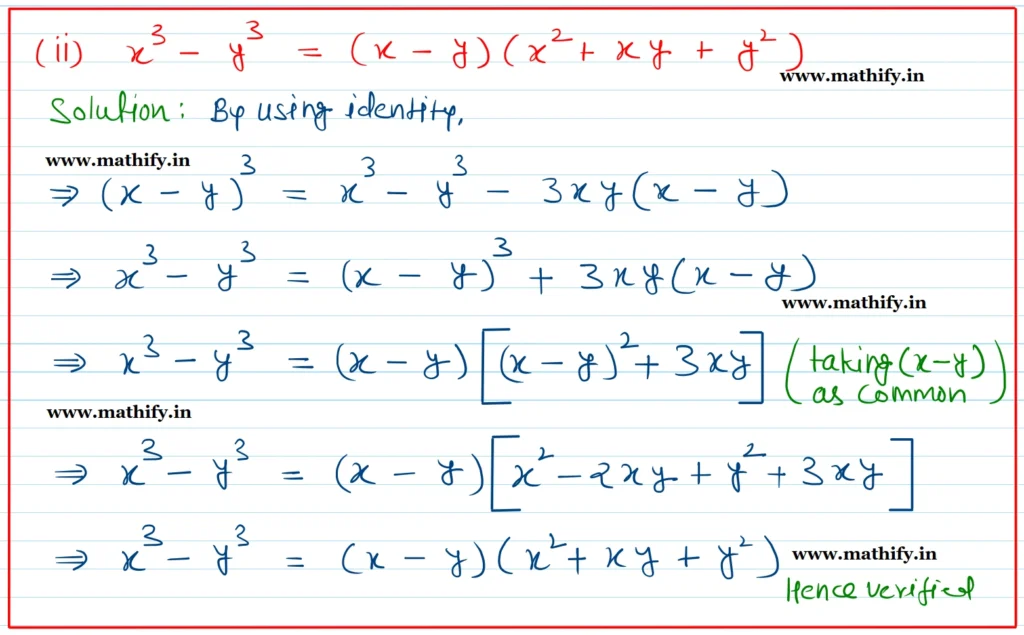 (ii) x³ - y³ = (x - y)(x² + xy + y²)
www.mathify.in
Solution: By using identity,
www.mathify.in
⇒ (x - y)³ = x³ - y³ - 3xy(x - y)
⇒ x³ - y³ = (x - y)³ + 3xy(x - y)
www.mathify.in
⇒ x³ - y³ = (x - y)[(x - y)² + 3xy] (taking (x-y) as common)
www.mathify.in
⇒ x³ - y³ = (x - y)[x² - 2xy + y² + 3xy]
⇒ x³ - y³ = (x - y)(x² + xy + y²)
www.mathify.in
Hence verified